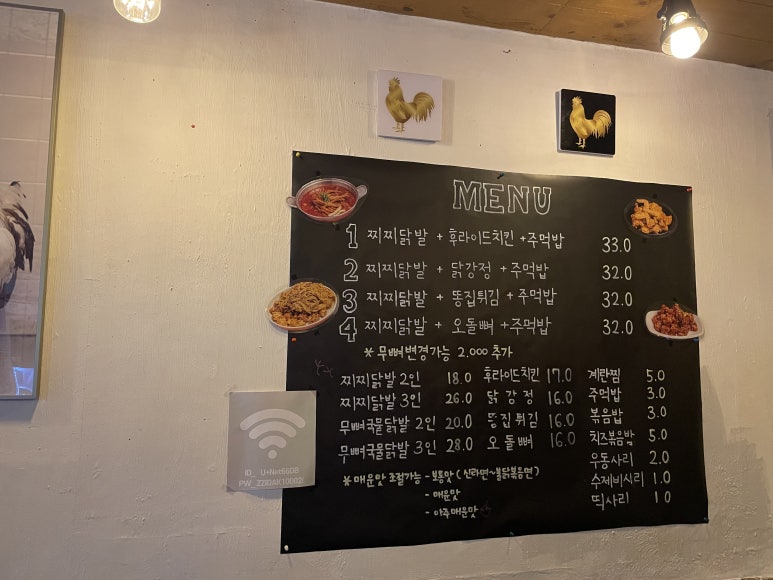 MENU
1 찌찌닭발 + 후라이드치킨 + 주먹밥 33.0
2 찌찌닭발 + 닭강정 + 주먹밥 32.0
3 찌찌닭발 + 똥집튀김 + 주먹밥 32.0
4 찌찌닭발 + 오돌뼈 + 주먹밥 32.0
* 무뼈변경가능 2.000 추가
찌찌닭발 2인 18.0
찌찌닭발 3인 26.0
무뼈국물닭발 2인 20.0
무뼈국물닭발 3인 28.0
후라이드치킨 17.0
닭강정 16.0
똥집튀김 16.0
오돌뼈 16.0
계란찜 5.0
주먹밥 3.0
볶음밥 3.0
치즈볶음밥 5.0
우동사리 2.0
수제비사리 1.0
떡사리 1.0
* 매운맛 조절가능 - 보통맛 (신라면~불닭볶음면)
- 매운맛
- 아주매운맛
ID_ U+Net66DB
PW_ZZIDAK10002!